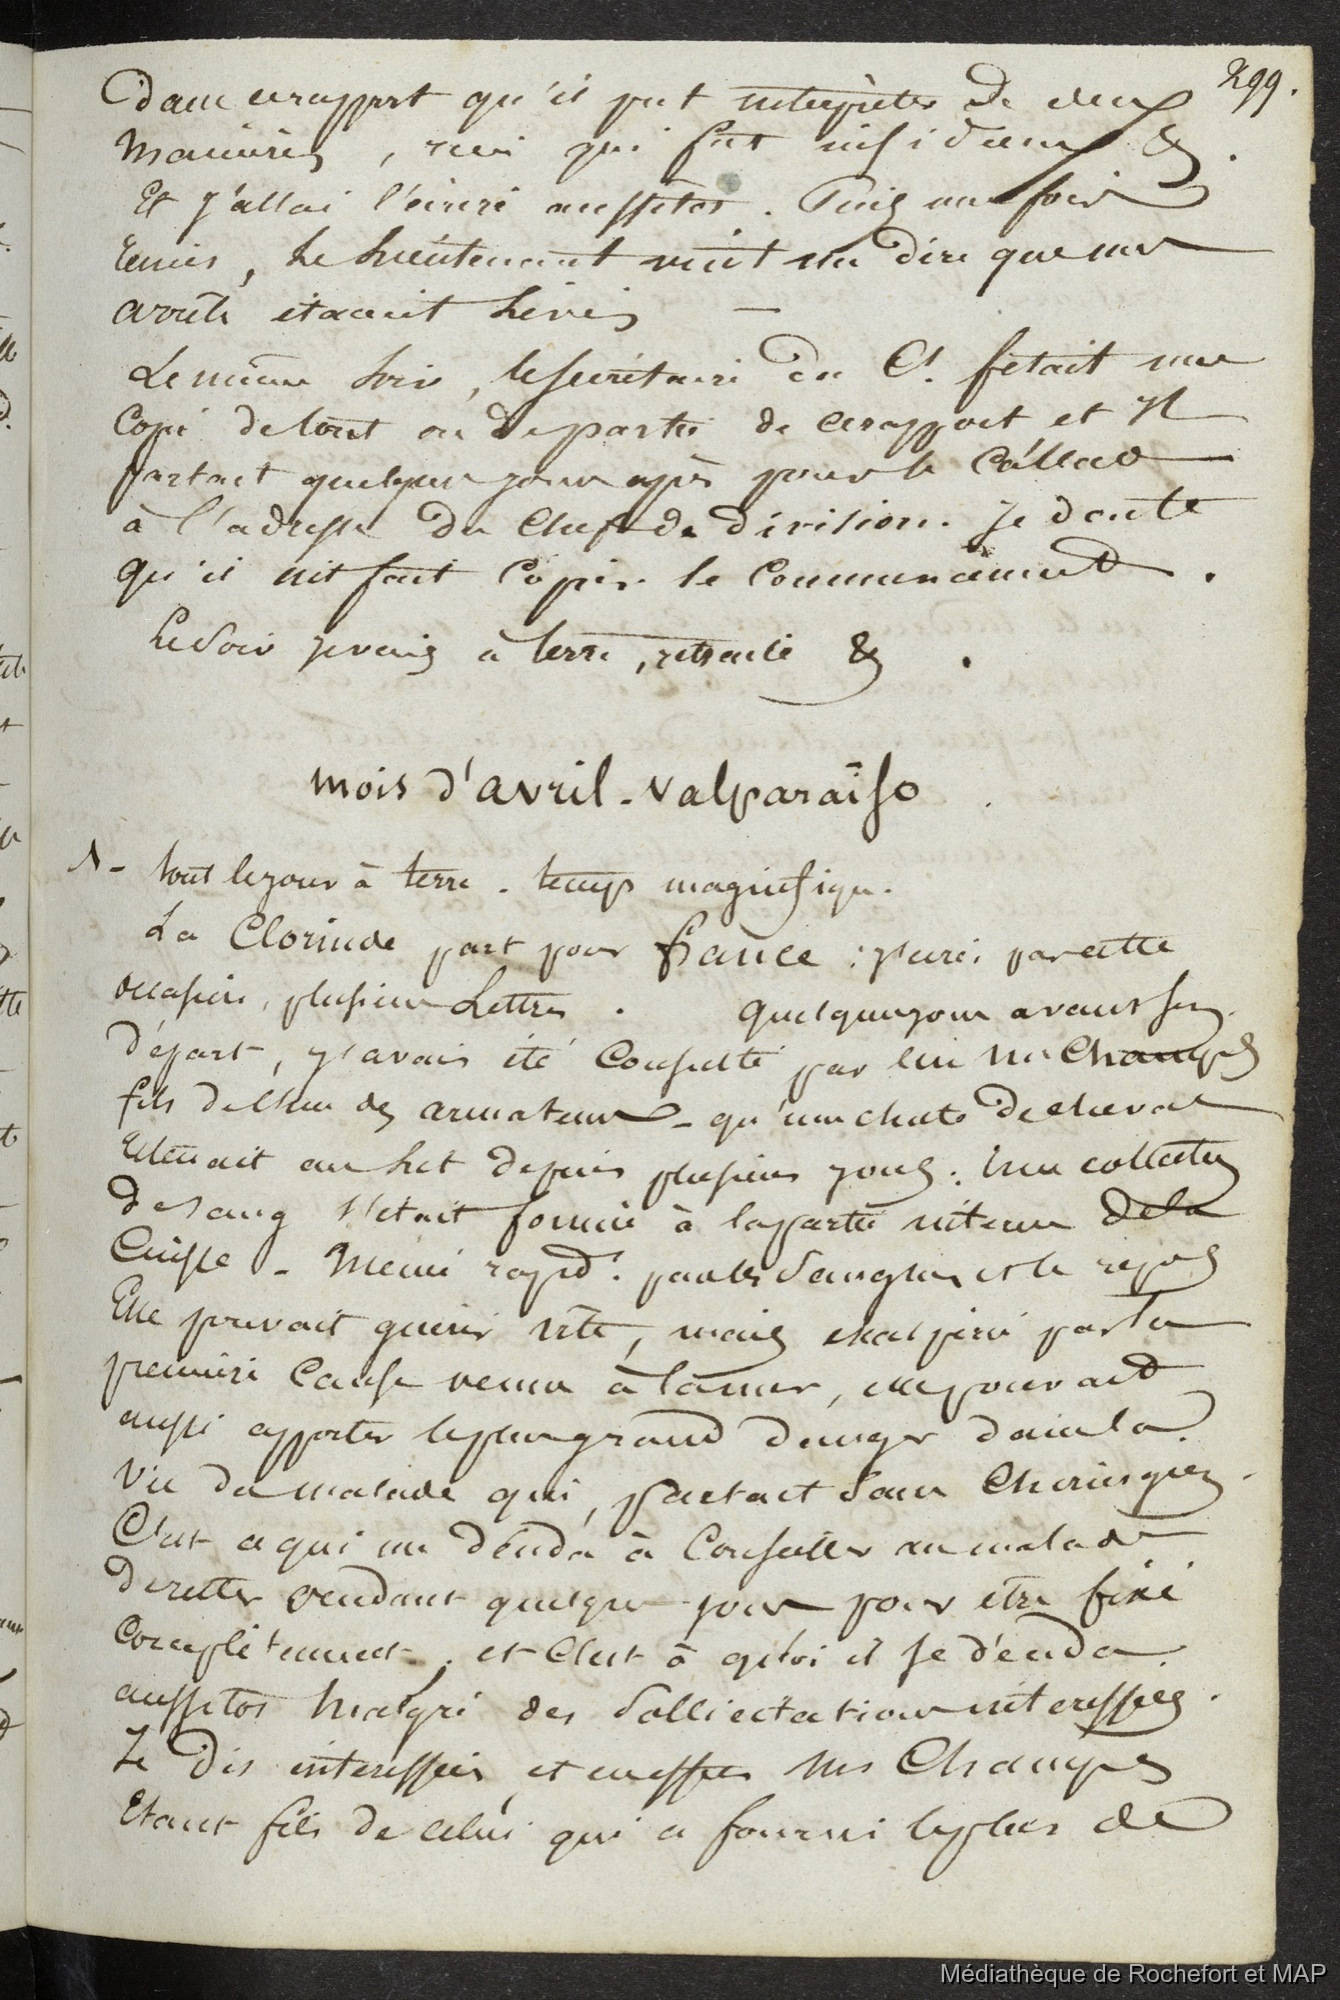 299.
Dans ce rapport qu'il put interpreter de deux
manières, rien qui fut insidieux &.
Et j'allai l'écrire aussitot. Puis une fois
remis, le lieutenant vint me dire que mes
arrêts étaient levés —
Le même soir, le secrétaire du Ct. fetait une
copie de tout ou de partie de ce rapport et il
partait quelques jours après pour le Callao
à l'adresse du chef de division. Je doute
qu'il ait fait copier le commencement.
Le soir je vais à terre, retraite &.
mois d'avril - valparaiso
1 - tout le jour à terre. temps magnifique.
La Clorinde part pour france : j'écris par cette
occasion, plusieurs lettres. quelques jours avant son
départ, j'avais été consulté par lui Mr Champs
fils de l'un des armateurs - qu'une chute de cheval
retenait au lit depuis plusieurs jours. Une collection
de sang s'était formée à la partie interne de la
cuisse - par les sangsues et le repos
Elle pouvait guérir vite, mais exaspérée par la
première cause venue à la mer, elle pouvait
aussi apporter le plus grand danger dans la
vie du malade qui, partait sans chirurgien.
C'est ce qui me décida à conseiller au malade
de rester pendant quelques jours pour être fixé
complètement, et c'est à quoi il se décida
aussitot malgré des sollicitations interessées.
Je dis interessées, et en effet Mr Champs
Etant fils de celui qui a fourni le plus de
Médiathèque de Rochefort et MAP